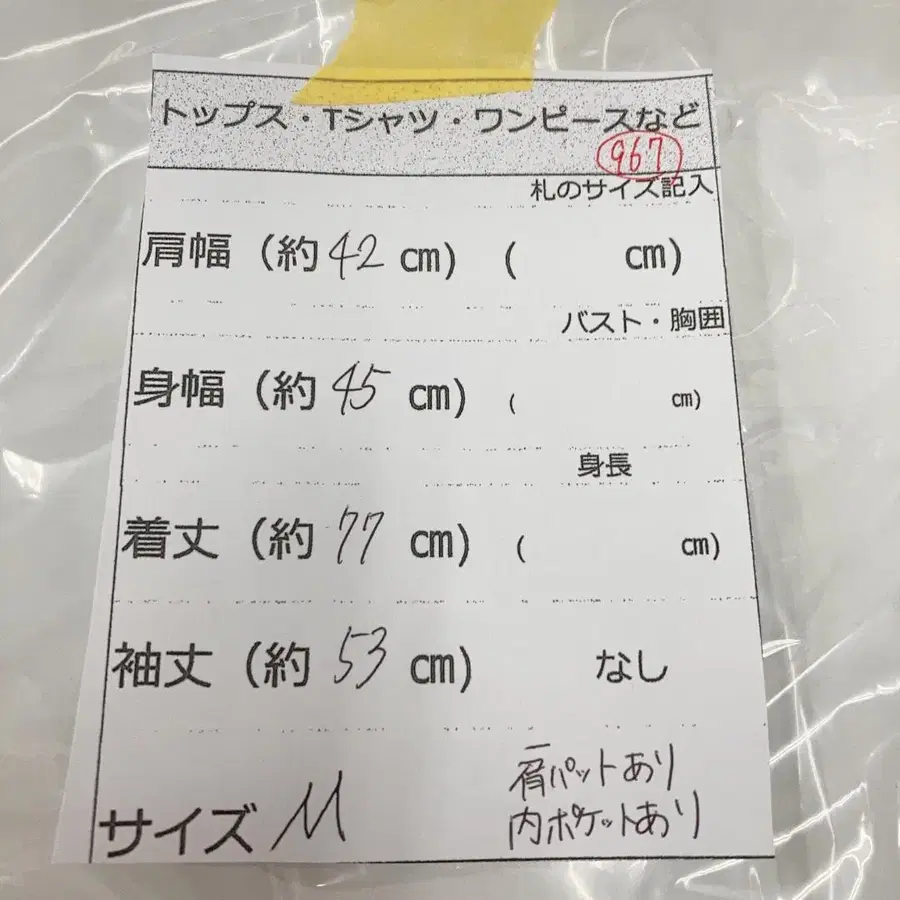 トップス・Tシャツ・ワンピースなど
967
札のサイズ記入
肩幅(約42cm) ( cm)
バスト・胸囲
身幅(約45cm) ( cm)
身長
着丈(約77cm) ( cm)
袖丈(約53cm) なし
サイズ M
肩パットあり
内ポケットあり